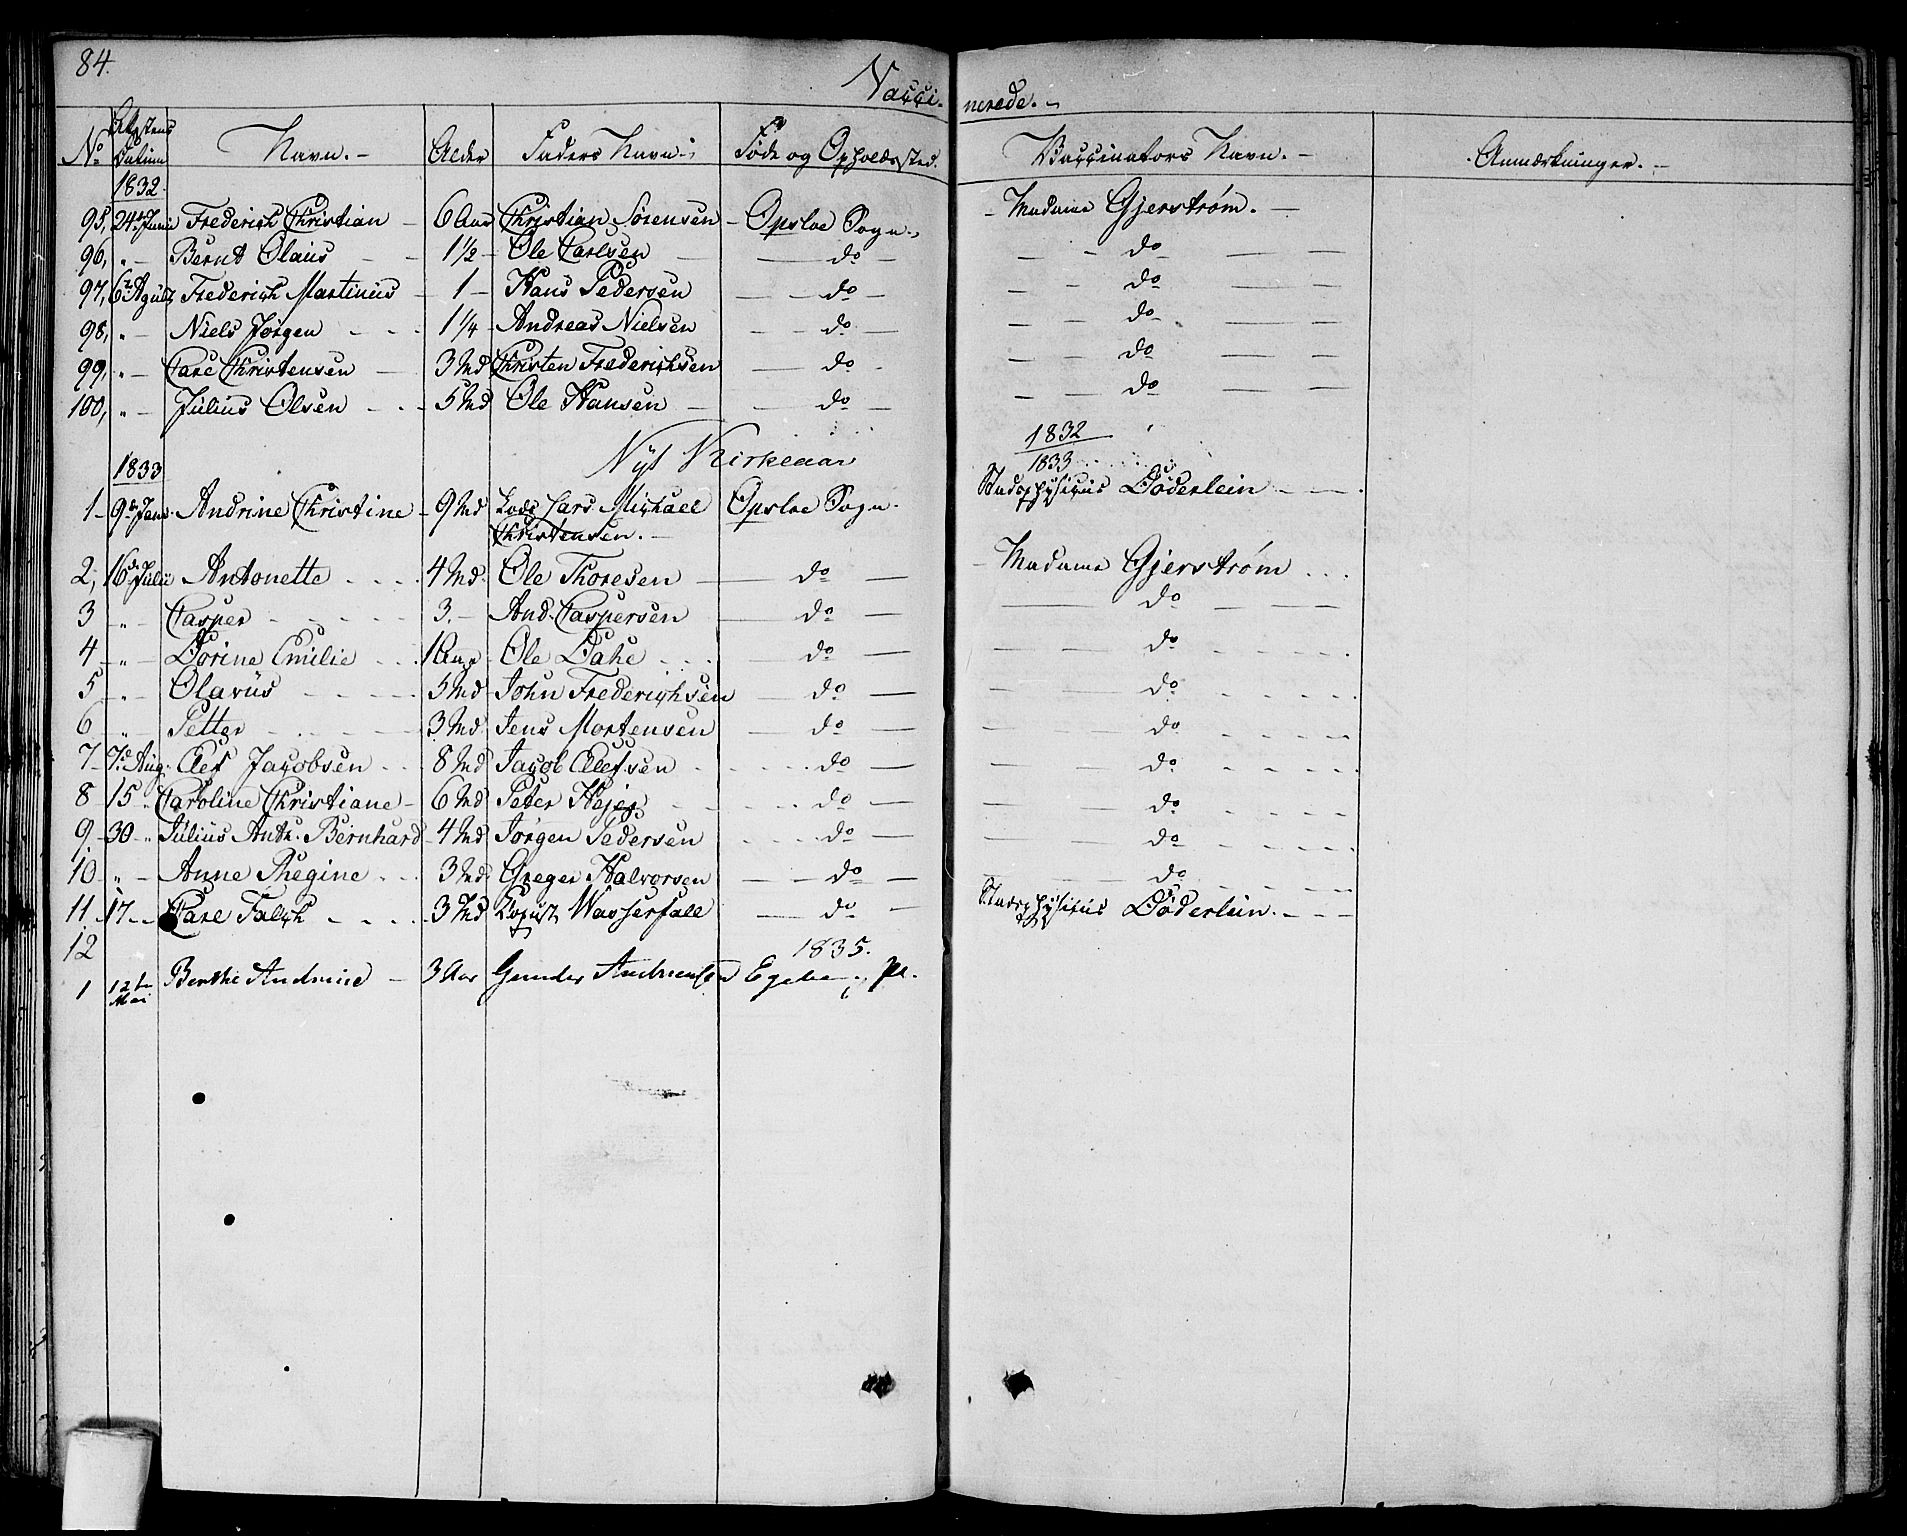 84.
Vacci- nerede. -
No Attestens Datum Navn. - Alder Faders Navn. Føde og Opholdssted. Vaccinators Navn. - Anmærkninger. -
1832.
95, 24de Juni Frederich Christian - 6 Aar Christian Sörensen - Opsloe Sogn. - Madame Gjerström. -
96, " - Bernt Olaus - 1½ - Ole Carlsen - do - - do - -
97, 6te Agust Frederich Martinus - 1 - Hans Pedersen - do - - do - -
98, " - Niels Jørgen - 1¼ - Andreas Nielsen - do - - do - -
99, " - Carl Christensen - 3 Md Christen Frederichsen - do - - do - -
100, " - Julius Olsen - 5 Md Ole Hansen - do - - do - -
Nyt Kirkeaar 1832
1833 1833
1 - 9de Janr Andrine Christine - 9 Md Lars Michael Opsloe Sogn. Stadsphysicus Døderlein - - -
Christensen. -
2, 16de Juli Antonette - 4 Md. Ole Thoresen - do - - Madame Gjerström
3 " - Casper - 3. - And. Caspersen - do - - do - -
4 - " - Dorine Emilie - 1 Aar Ole Dahl - do - - do - -
5 - " - Olavus - 5 Md John Frederichsen - do - - do - -
6 " Petter - 3 Md Jens Mortensen - do - - do - -
7 - 7de Aug. Elef Jacobsen - 8 Md Jacob Elefsen - do - - do - -
8 15 " Caroline Christiane - 6 Md Peter Hejer - do - - do - -
9 - 30 - " Julius Anth. Bernhard - 4 Md Jørgen Pedersen - do - - do - -
10 - " - Anne Regine - 3 Md Greger Halvorsen - do - - do - -
11 - 17 - " Carl Falch - 3 Md Wasserfall - do - Stadsphysicus Döderlein. - - -
12 1835.
1 12te Mai Berthe Andrine - 3 Aar Gunder Andreassen Egeberg Pl.